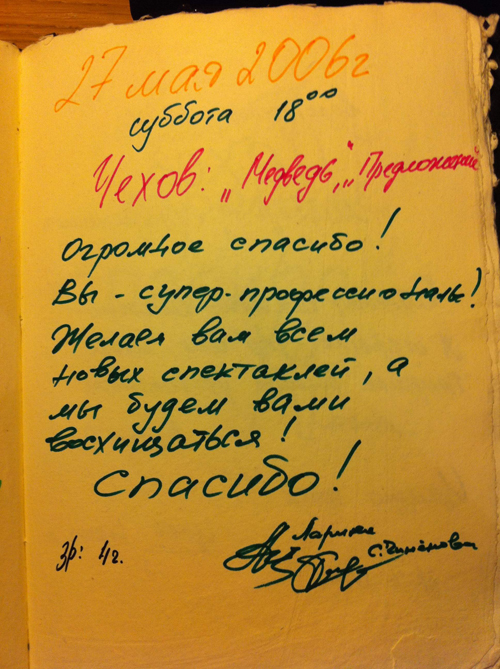 27 мая 2006г
суббота 18⁰⁰
Чехов: „Медведь", „Предложений
Огромное спасибо!
Вы - супер-профессионалы!
Желаем вам всем
новых спектаклей, а
мы будем вами
восхищаться!
Спасибо!
Зр: 4г.